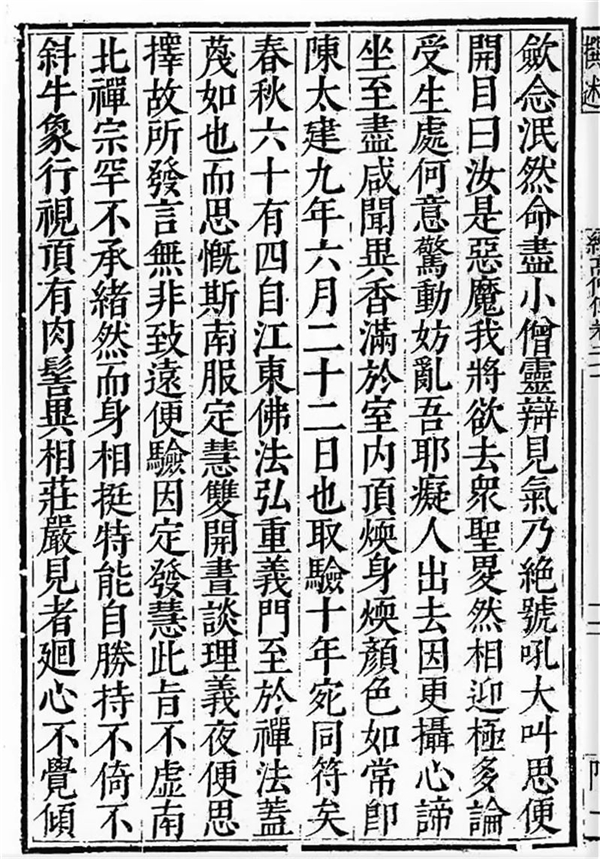 撰述
歛念泯然命盡小僧靈辯見氣乃絕號吼大叫思便
開目曰汝是惡魔我將欲去衆聖畟然相迎極多論
受生處何意驚動妨亂吾耶癡人出去因更攝心諦
坐至盡咸聞異香滿於室内頂煗身煗顏色如常卽
陳太建九年六月二十二日也取驗十年宛同符矣
春秋六十有四自江東佛法弘重義門至於禪法蓋
蔑如也而思慨斯南服定慧雙開晝談理義夜便思
擇故所發言無非致遠便驗因定發慧此旨不虛南
北禪宗罕不承緒然而身相挺特能自勝持不倚不
斜牛象行視頂有肉髻異相莊嚴見者廻心不覺傾